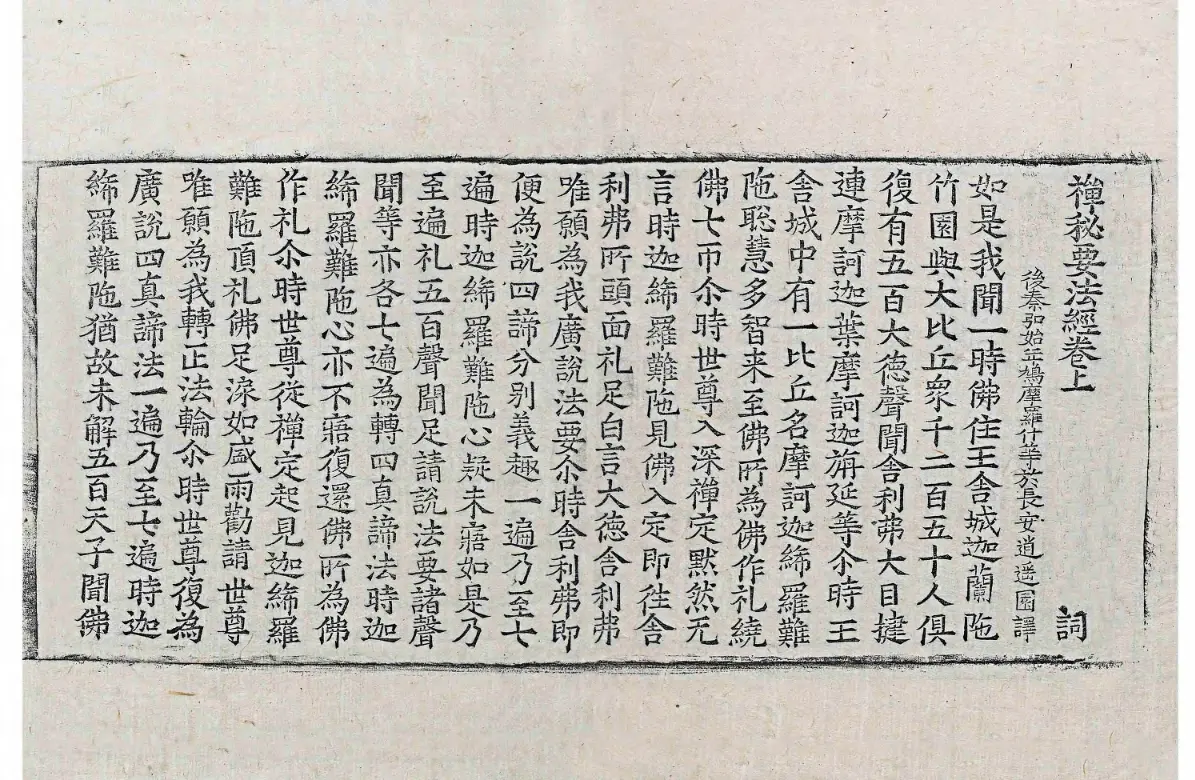 禪秘要法經卷上
詞
後秦弘始年鳩摩羅什等於長安逍遥園譯
如是我聞一時佛住王舍城迦蘭陁
竹園與大比丘衆千二百五十人俱
復有五百大德聲聞舍利弗大目揵
連摩訶迦葉摩訶迦旃延等尒時王
舍城中有一比丘名摩訶迦絺羅難
陁聦慧多智来至佛所為佛作礼繞
佛七帀尒時世尊入深禪定默然无
言時迦絺羅難陁見佛入定即徃舍
利弗所頭面礼足白言大德舍利弗
唯願為我廣說法要尒時舍利弗即
便為說四諦分别義趣一遍乃至七
遍時迦絺羅難陁心疑未寤如是乃
至遍礼五百聲聞足請說法要諸聲
聞等亦各七遍為轉四真諦法時迦
絺羅難陁心亦不寤復還佛所為佛
作礼尒時世尊從禪定起見迦絺羅
難陁頂礼佛足淚如盛雨勸請世尊
唯願為我轉正法輪尒時世尊復為
廣說四真諦法一遍乃至七遍時迦
絺羅難陁猶故未解五百天子聞佛